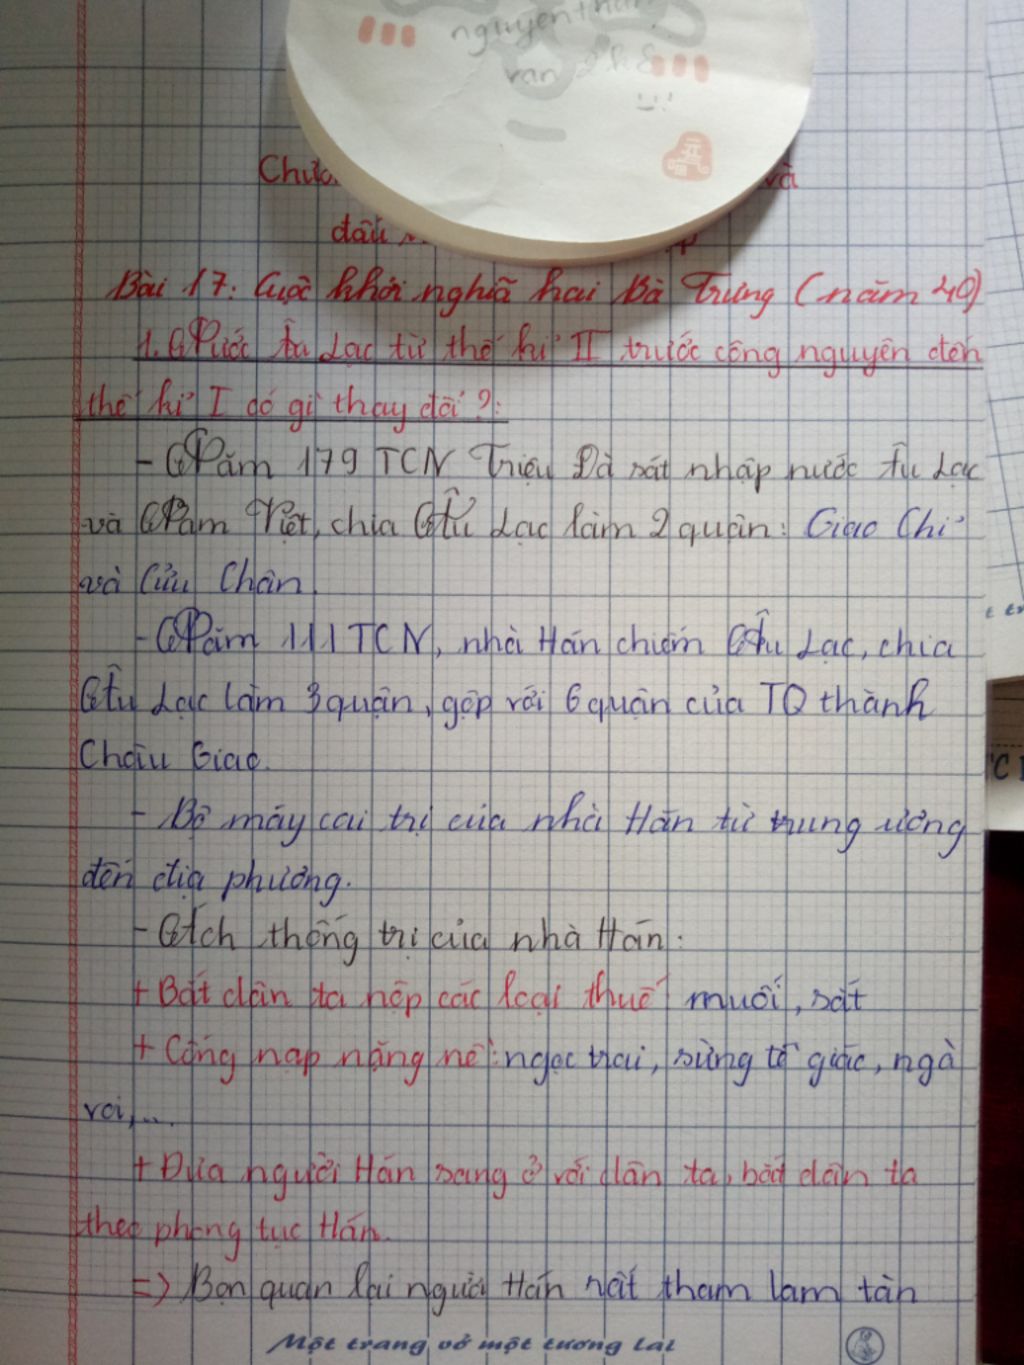 nguyễn
van 2k8
Chươ và
đấu
Bài 17: Cuộc khởi nghĩa hai Bà Trưng (năm 40)
1. Nước Âu Lạc từ thế kỉ II trước công nguyên đến
thế kỉ I có gì thay đổi?:
- Năm 179 TCN Triệu Đà sát nhập nước Âu Lạc
và Nam Việt, chia Âu Lạc làm 2 quận: Giao Chỉ
và Cửu Chân.
- Năm 111 TCN, nhà Hán chiếm Âu Lạc, chia
Âu Lạc làm 3 quận, gộp với 6 quận của TQ thành
Châu Giao.
- Bộ máy cai trị của nhà Hán từ trung ương
đến địa phương.
- Ách thống trị của nhà Hán:
+ Bắt dân ta nộp các loại thuế muối, sắt
+ Cống nạp nặng nề: ngọc trai, sừng tê giác, ngà
voi,...
+ Đưa người Hán sang ở với dân ta, bắt dân ta
theo phong tục Hán.
=> Bọn quan lại người Hán rất tham lam tàn
Một trang vở một tương lai